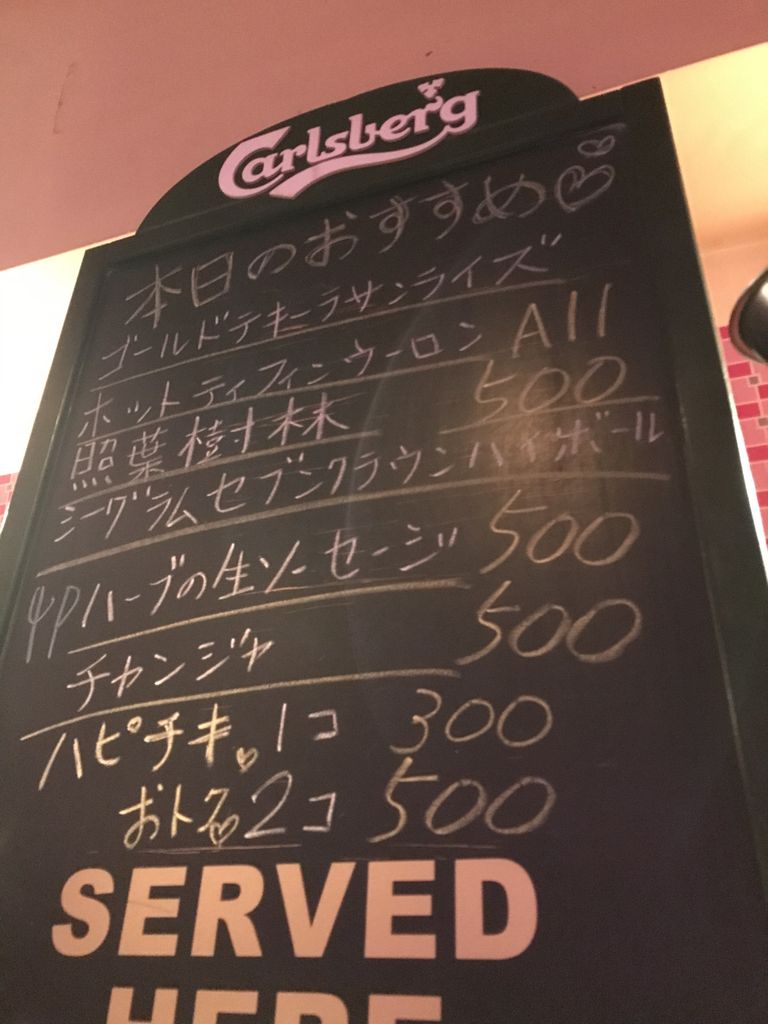 Carlsberg
本日のおすすめ♡♡
ゴールドテキーラサンライズ
ホットティフィンウーロン All
照葉樹林 500
シーグラムセブンクラウンハイボール
4Pハーブの生ソーセージ 500
チャンジャ 500
ハピチキ。1コ 300
おトク♡2コ 500
SERVED
HERE